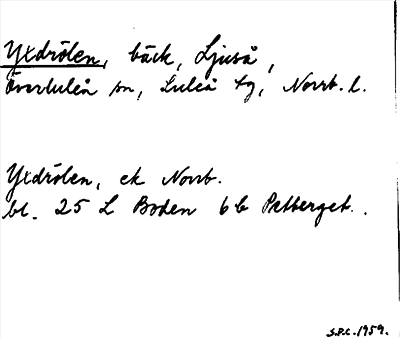 Yxdrölen, bäck, Ljuså,
Överluleå sn, Luleå tg, Norrb. l.
Yxdrölen, ek Norrb.
bl. 25 L Boden 6 b Pættberget.
S.P.C. 1959.